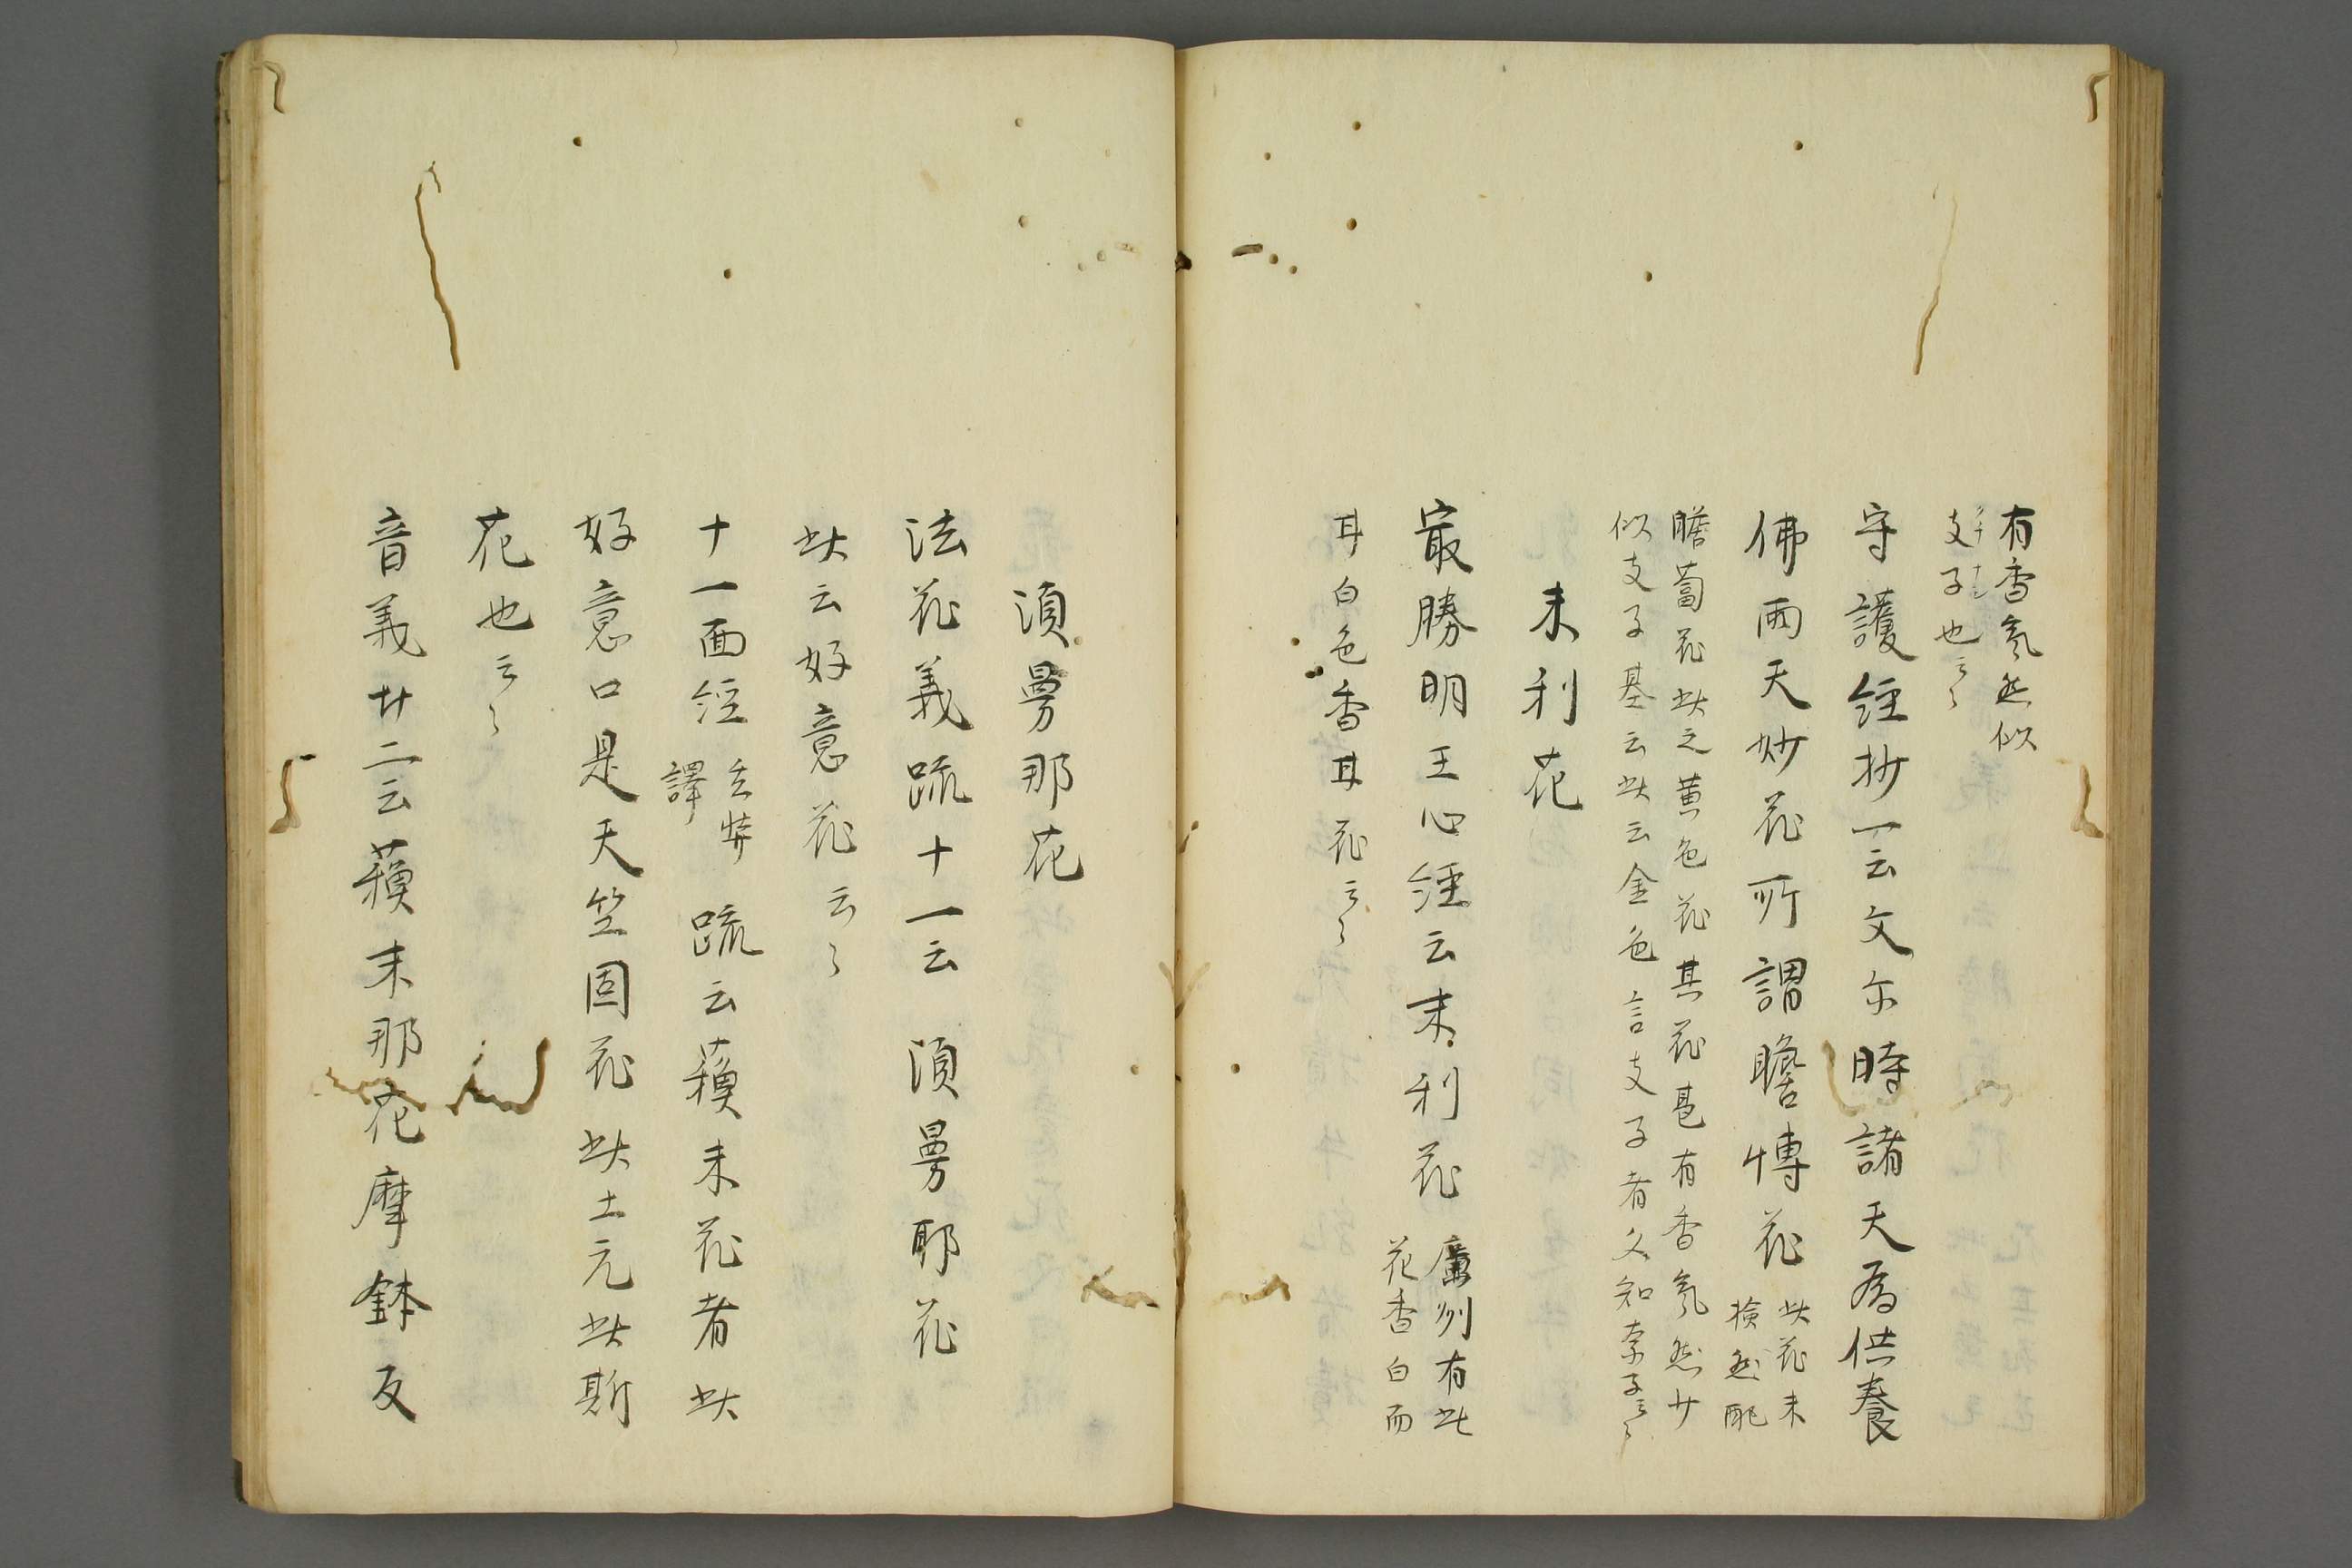 有香氣然似
支子也云々
守護經抄一云文尓時諸天為供養
佛雨天妙花所謂瞻博花
此花未
撿然配
瞻蔔花此之黄色花其花甚有香氣然少
似支子基云此云金色言支子者
末利花
最勝明王心經云末利花
廣州有此
花香白而
耳白色香耳花云々
湏曼那花
法花義疏十一云 湏曼耶花
此云好意花云々
十一面經
玄奘
譯
疏云蘱末花者此
好意口是天竺国花此土元此斯
花也云々
音義廿二云蘱末那花摩鉢反